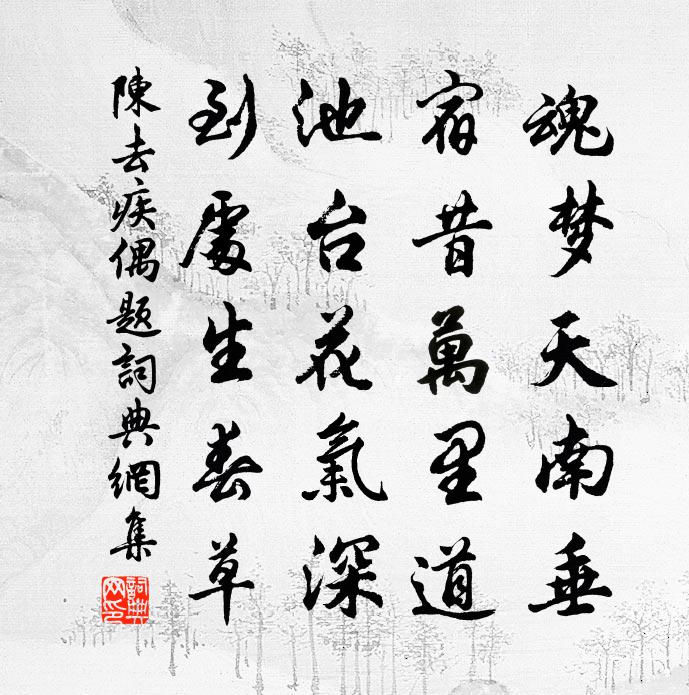 魂梦天南垂
宿昔萬里道
池台花氣深
到處生春草
陳去疾偶題詞典網集
詞典网印